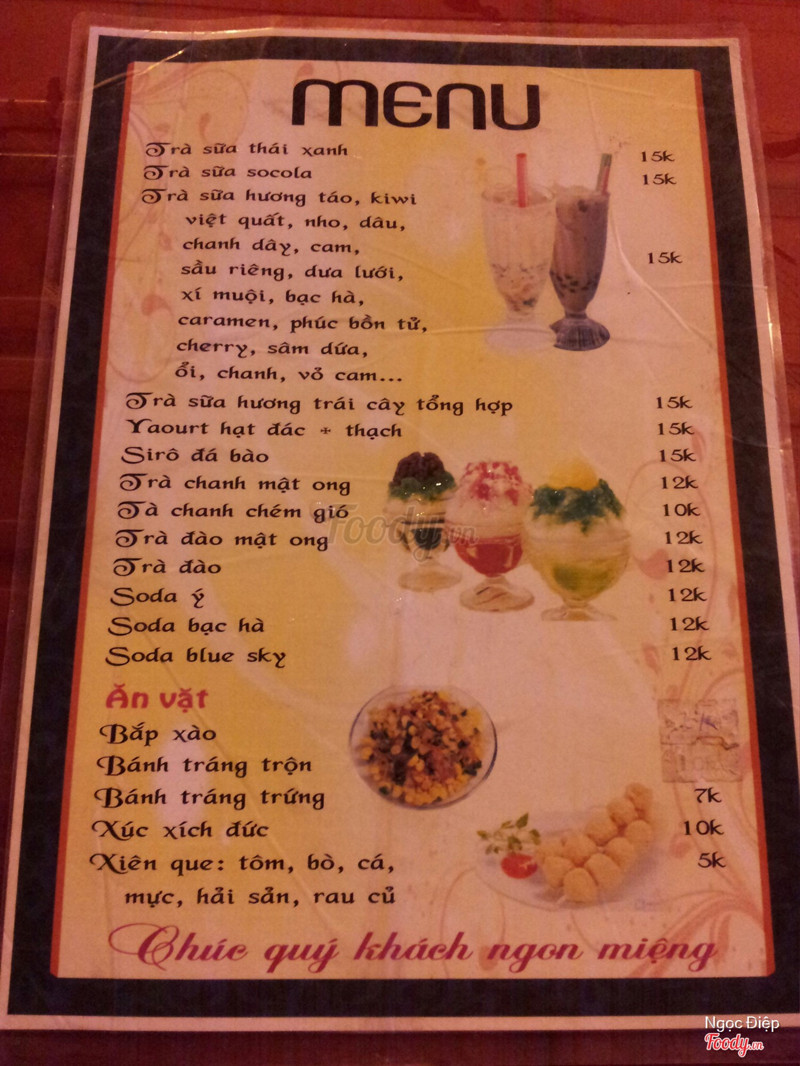 MENU
Trà sữa thái xanh 15k
Trà sữa socola 15k
Trà sữa hương táo, kiwi
việt quất, nho, dâu,
chanh dây, cam,
sầu riêng, dưa lưới, 15k
xí muội, bạc hà,
caramen, phúc bồn tử,
cherry, sâm dứa,
ổi, chanh, vỏ cam...
Trà sữa hương trái cây tổng hợp 15k
Yaourt hạt đác + thạch 15k
Sirô đá bào 15k
Trà chanh mật ong 12k
Tà chanh chém gió 10k
Trà đào mật ong 12k
Trà đào 12k
Soda ý 12k
Soda bạc hà 12k
Soda blue sky 12k
Ăn vặt
Bắp xào
Bánh tráng trộn 10k
Bánh tráng trứng 7k
Xúc xích đức 10k
Xiên que: tôm, bò, cá, 5k
mực, hải sản, rau củ
Chúc quý khách ngon miệng
Foody.vn
Ngọc Điệp
Foody.vn